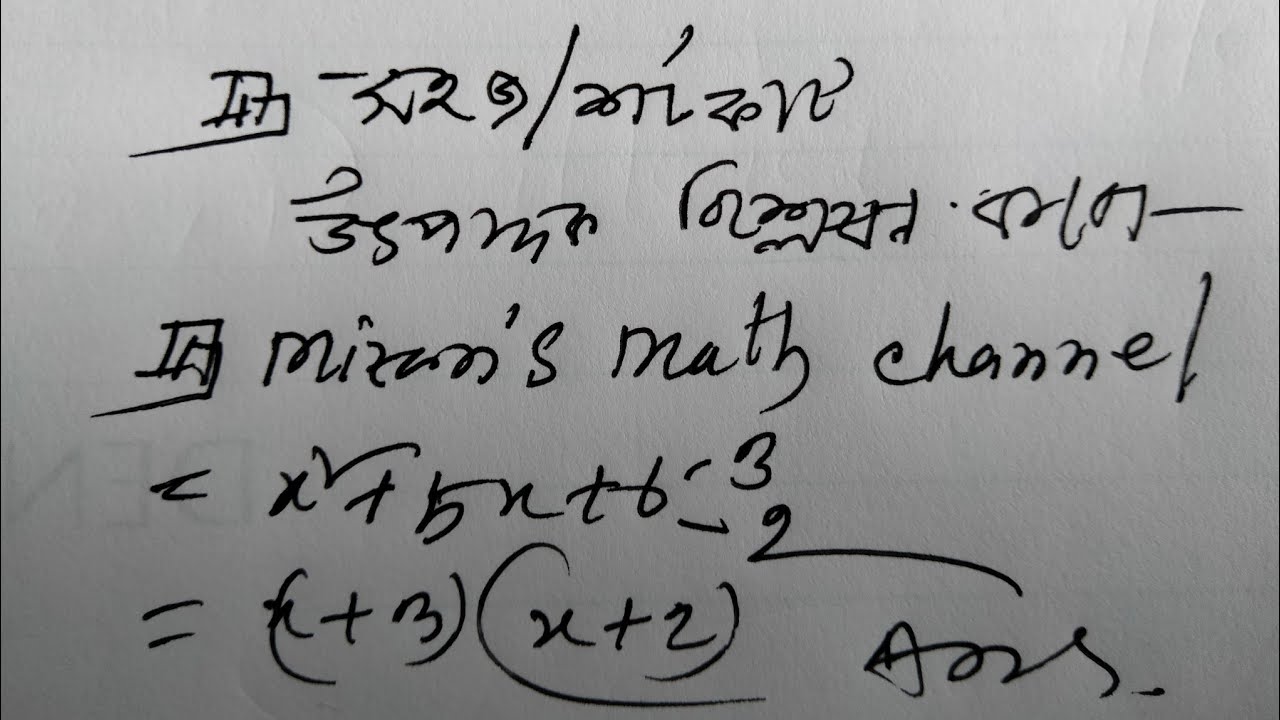 সহজ/শর্টকাট
উৎপাদক বিশ্লেষণ করো—
Mizan's Math channel
= x² + 5x + 6 3
2
= (x+3)(x+2) Ans.